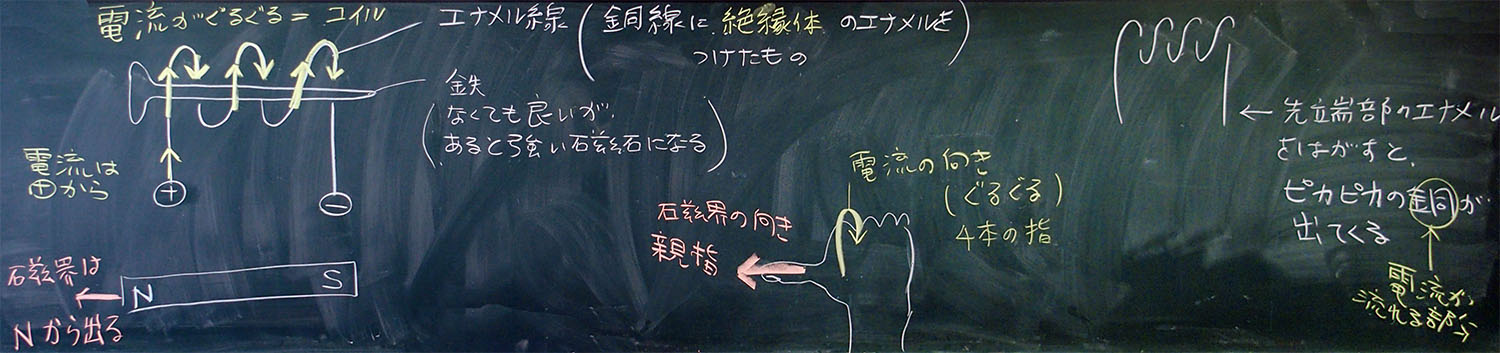 電流がぐるぐる = コイル
エナメル線 (銅線に絶縁体のエナメルを
つけたもの)
鉄
(なくても良いが、
あると強い磁石になる)
電流は
⊕から
⊕
⊖
磁界は
Nから出る
N
S
磁界の向き
親指
電流の向き
(ぐるぐる)
4本の指
← 先端部のエナメル
をはがすと、
ピカピカの銅が
出てくる
電流が
流れる部分